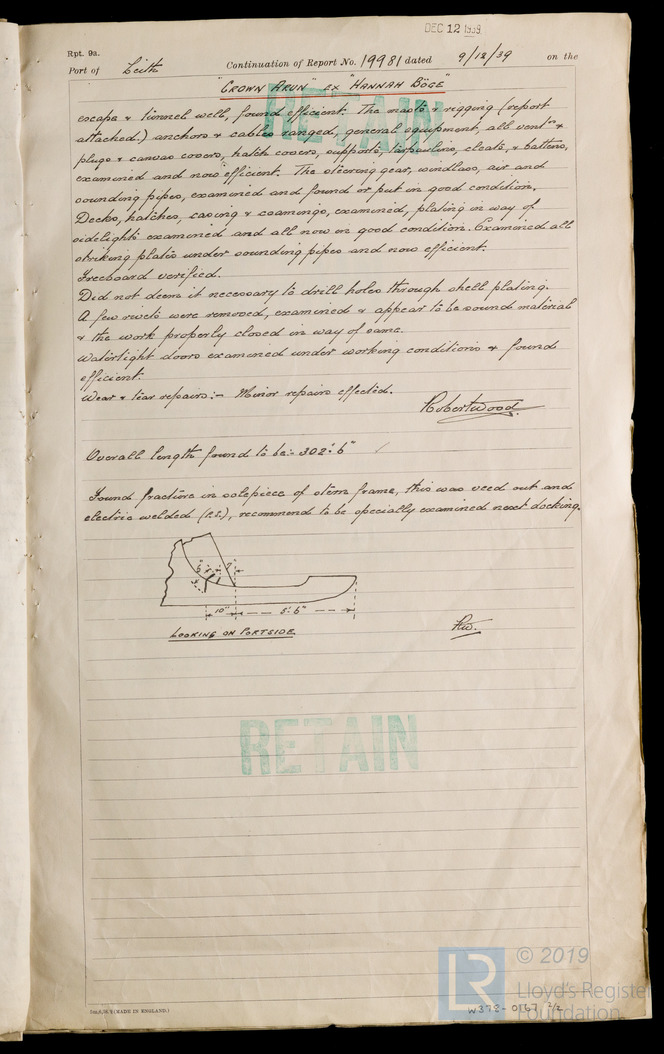 DEC 12 1939
Rpt. 9a.
Port of Leith Continuation of Report No. 19981 dated 9/12/39 on the
"CROWN ARUN" EX "HANNAH BÖGE"
RETAIN
escape & tunnel well, found efficient. The masts & rigging (report
attached.) anchors & cables ranged, general equipment, all ventrs &
plugs & canvas covers, hatch covers, supports, tarpaulins, cleats, & battens,
examined and now efficient. The steering gear, windlass, air and
sounding pipes, examined and found or put in good condition.
Decks, hatches, casing & coamings, examined, plating in way of
sidelights examined and all now in good condition. Examined all
striking plates under sounding pipes and now efficient.
Freeboard verified.
Did not deem it necessary to drill holes through shell plating.
A few rivets were removed, examined & appear to be sound material
& the work properly closed in way of same.
Watertight doors examined under working conditions & found
efficient.
Wear & tear repairs:- Minor repairs effected.
Robert Wood.
Overall length found to be:- 302'. 6"
Found fracture in solepiece of stern frame, this was veed out and
electric welded (P.S.), recommend to be specially examined next docking.
6" 7"
10" 5'. 6"
LOOKING ON PORTSIDE.
RW.
RETAIN
© 2019
Lloyd's Register
Foundation
W378-0167 2/2
(MADE IN ENGLAND.)